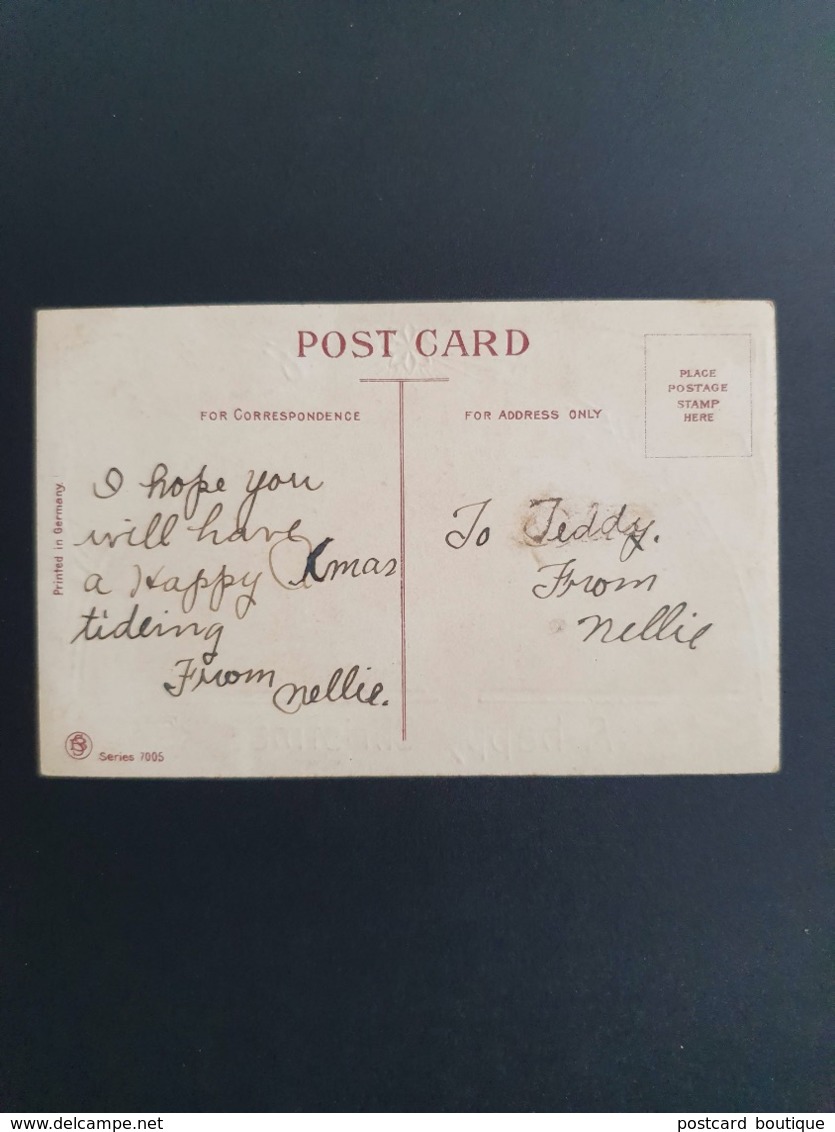 POST CARD
PLACE
POSTAGE
STAMP
HERE
FOR CORRESPONDENCE
FOR ADDRESS ONLY
Printed in Germany.
I hope you
will have
a Happy Xmas
tideing
From Nellie.
To Teddy.
From
Nellie
Series 7005
delcampe.net
postcard boutique